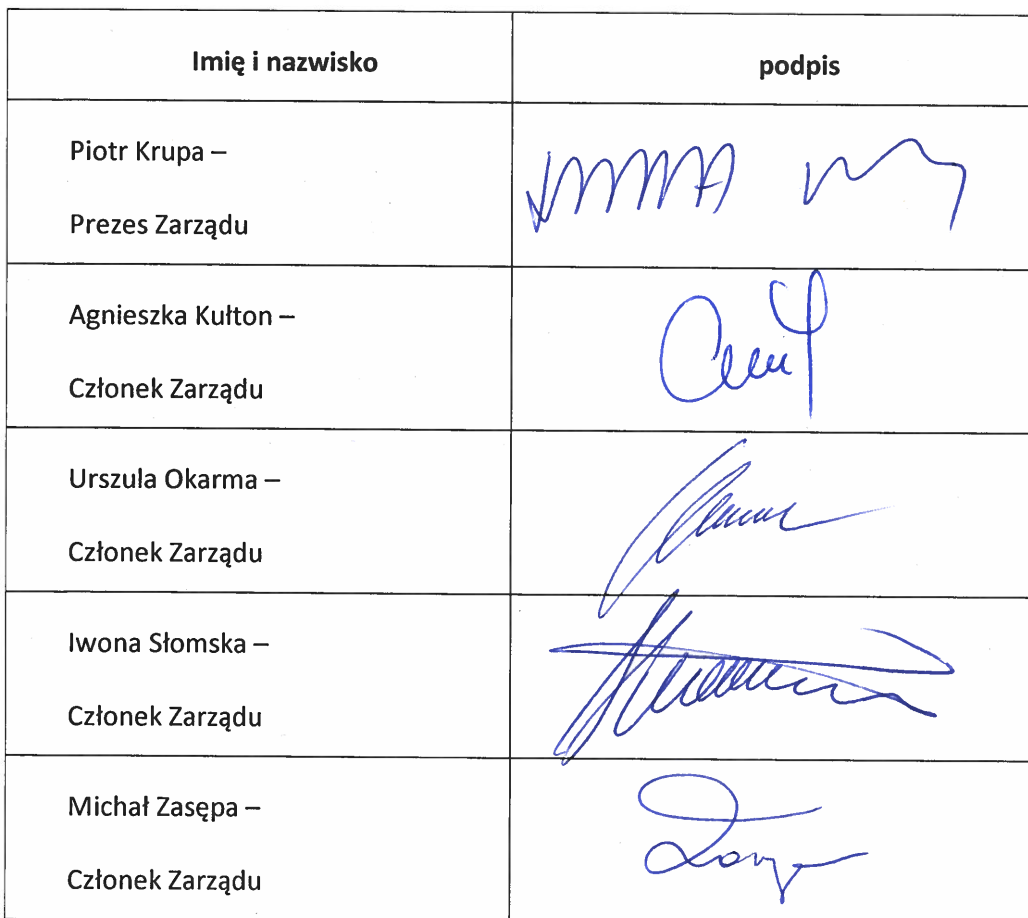 Imię i nazwisko
podpis
Piotr Krupa –
Prezes Zarządu
Agnieszka Kułton –
Członek Zarządu
Urszula Okarma –
Członek Zarządu
Iwona Słomska –
Członek Zarządu
Michał Zasępa –
Członek Zarządu